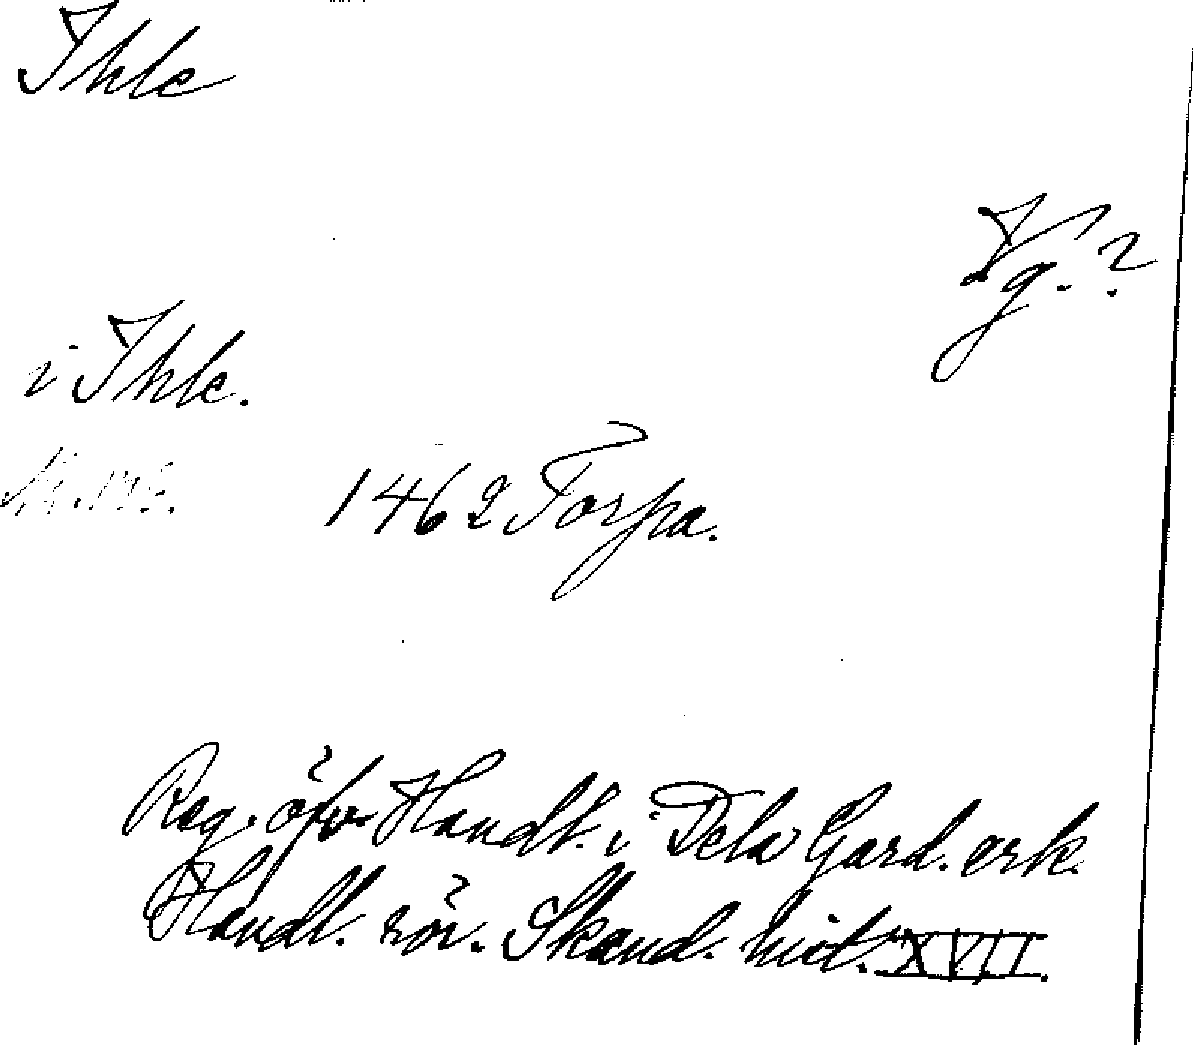 Ihle
Vg. ?
i Ihle.
1462 Torpa.
Reg. öfv. Handl. i Dela Gard. ark.
Handl. rör. Skand. hist. XVII.